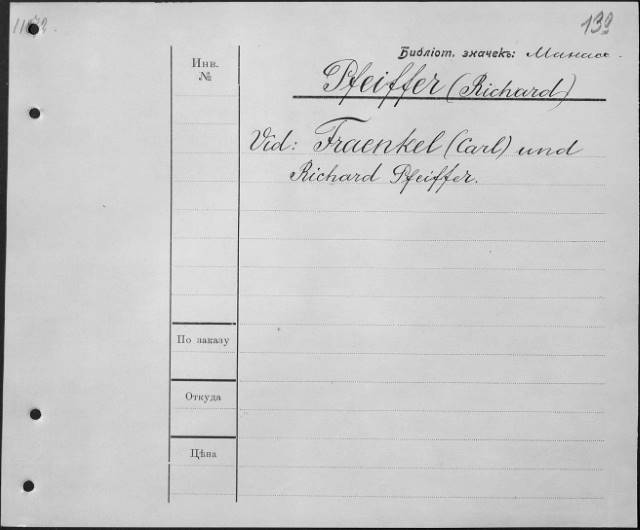 139
Библіот. значекъ: Манас.
Инв.
№
Pfeiffer (Richard)
Vid: Fraenkel (Carl) und
Richard Pfeiffer.
По заказу
Откуда
Цѣна